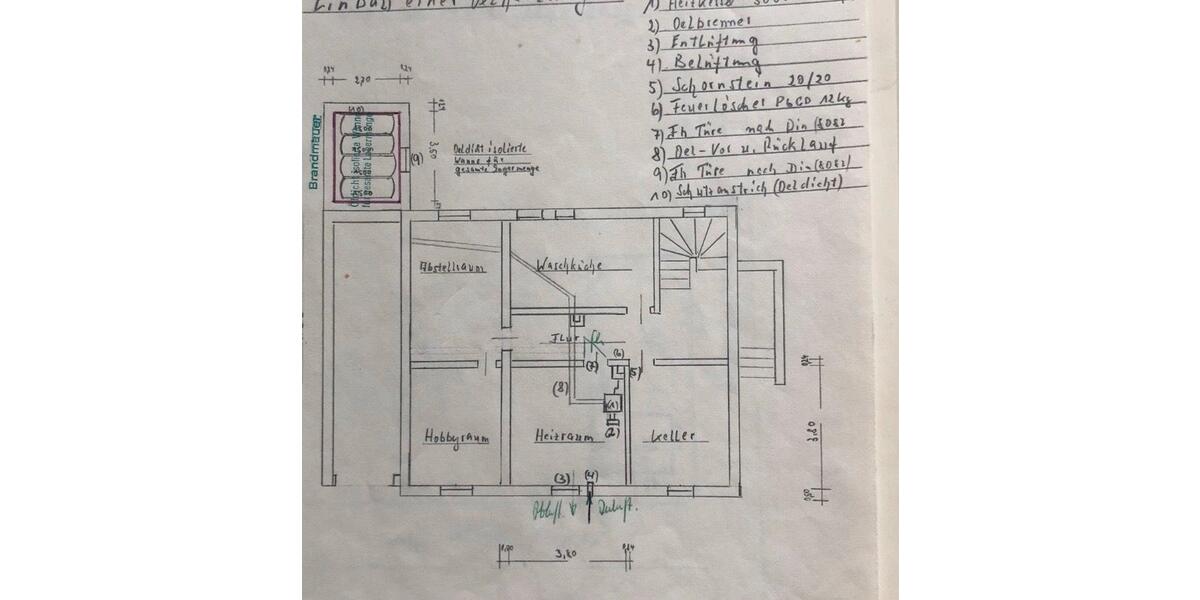 Einbau einer
1) Heizkessel
2) Oelbrenner
3) Entlüftung
4) Belüftung
5) Schornstein 20/20
6) Feuerlöscher PG 12kg
7) Fh Türe nach Din 18082
8) Oel-Vor u. Rücklauf
9) Fh Türe nach Din 18082
10) Schutzanstrich (Oeldicht)
0,24 2,70 0,24
Brandmauer
3,50
(9)
Oeldicht isolierte
Wanne für
gesamte Lagermenge
Abstellraum
Waschküche
Flur
fh
(7)
(6)
(5)
(8)
(1)
(2)
Hobbyraum
Heizraum
Keller
(3)
(4)
Abluft
Zuluft.
0,24
3,80
0,30
3,80
0,24